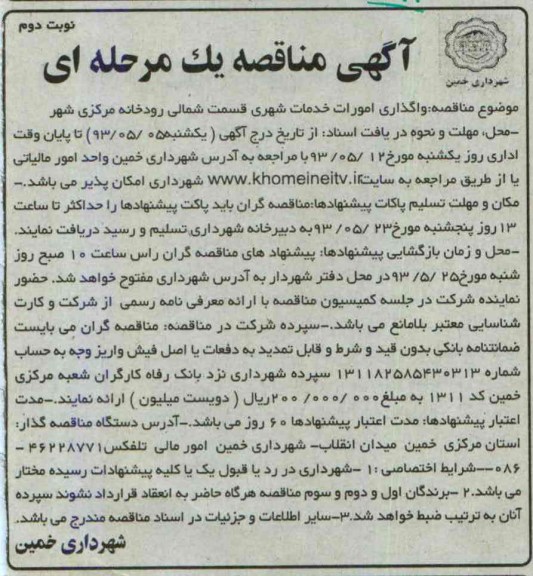 نوبت دوم
آگهی مناقصه یك مرحله ای
شهرداری خمین
موضوع مناقصه:واگذاری امورات خدمات شهری قسمت شمالی رودخانه مرکزی شهر
-محل، مهلت و نحوه در یافت اسناد: از تاریخ درج آگهی ( یکشنبه۹۳/۰۵/۰۵) تا پایان وقت
اداری روز یکشنبه مورخ۱۲ /۰۵/ ۹۳ با مراجعه به آدرس شهرداری خمین واحد امور مالیاتی
یا از طریق مراجعه به سایتwww.khomeineitv.ir شهرداری امکان پذیر می باشد.-
مکان و مهلت تسلیم پاکات پیشنهادها:مناقصه گران باید پاکت پیشنهادها را حداکثر تا ساعت
۱۳ روز پنجشنبه مورخ۲۳ /۰۵/ ۹۳به دبیرخانه شهرداری تسلیم و رسید دریافت نمایند.
-محل و زمان بازگشایی پیشنهادها: پیشنهاد های مناقصه گران راس ساعت ۱۰ صبح روز
شنبه مورخ۲۵ /۵/ ۹۳در محل دفتر شهردار به آدرس شهرداری مفتوح خواهد شد. حضور
نماینده شرکت در جلسه کمیسیون مناقصه با ارائه معرفی نامه رسمی از شرکت و کارت
شناسایی معتبر بلامانع می باشد.-سپرده شرکت در مناقصه: مناقصه گران می بایست
ضمانتنامه بانکی بدون قید و شرط و قابل تمدید به دفعات یا اصل فیش واریز وجه به حساب
شماره ۱۳۱۱۸۲۵۸۵۴۳۰۳۱۳ سپرده شهرداری نزد بانک رفاه کارگران شعبه مرکزی
خمین کد ۱۳۱۱ به مبلغ۰۰۰ /۰۰۰/ ۲۰۰ریال ( دویست میلیون ) ارائه نمایند.-مدت
اعتبار پیشنهادها: مدت اعتبار پیشنهادها ۶۰ روز می باشد.-آدرس دستگاه مناقصه گذار:
استان مرکزی خمین میدان انقلاب- شهرداری خمین امور مالی تلفکس۴۶۲۲۸۷۷۱ -
۰۸۶--شرایط اختصاصی :۱ -شهرداری در رد یا قبول یک یا کلیه پیشنهادات رسیده مختار
می باشد.۲ -برندگان اول و دوم و سوم مناقصه هرگاه حاضر به انعقاد قرارداد نشوند سپرده
آنان به ترتیب ضبط خواهد شد.۳-سایر اطلاعات و جزئیات در اسناد مناقصه مندرج می باشد.
شهرداری خمین